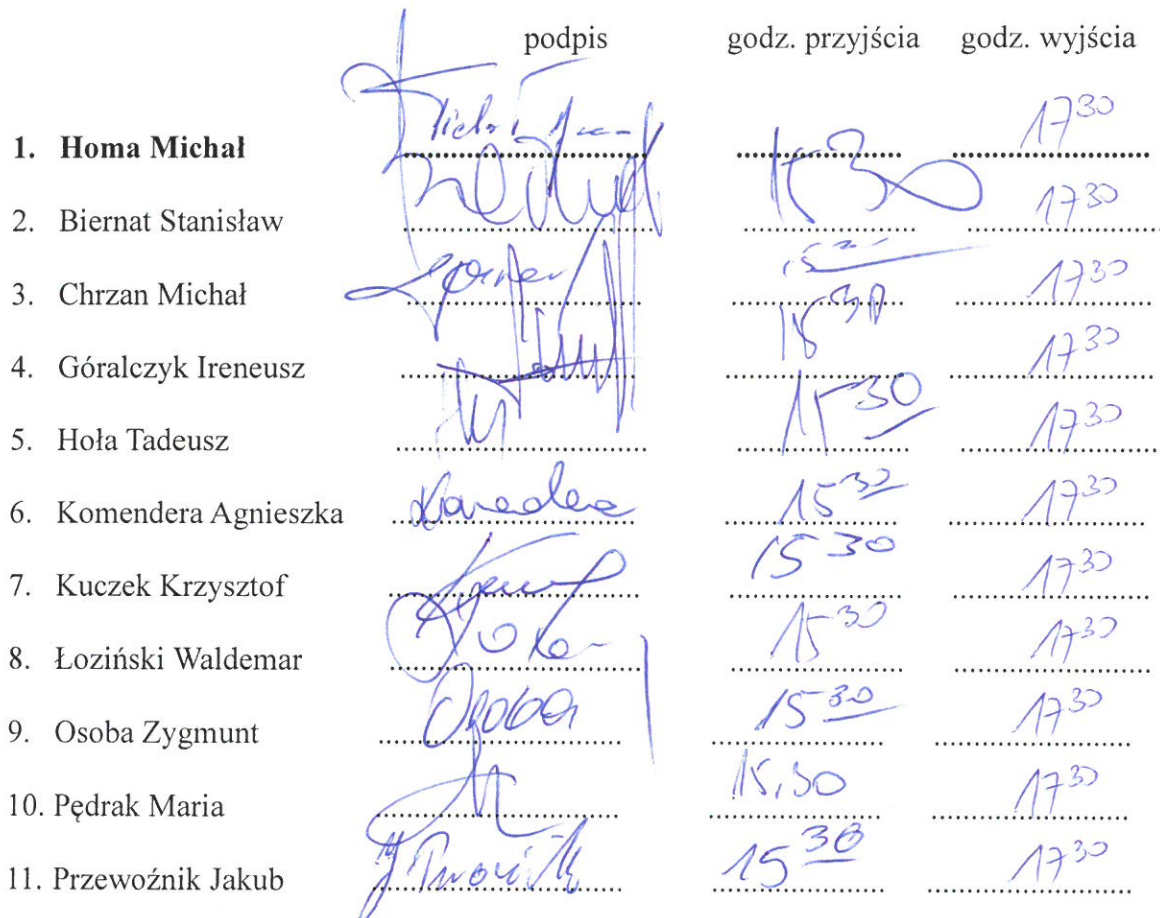 podpis godz. przyjścia godz. wyjścia
1. Homa Michał 17 30
2. Biernat Stanisław 15 30 17 30
3. Chrzan Michał 17 30
4. Góralczyk Ireneusz 15 30 17 30
5. Hoła Tadeusz 15 30 17 30
6. Komendera Agnieszka 15 30 17 30
7. Kuczek Krzysztof 15 30 17 30
8. Łoziński Waldemar 15 30 17 30
9. Osoba Zygmunt Osoba 15 30 17 30
10. Pędrak Maria 15,30 17 30
11. Przewoźnik Jakub 15 30 17 30